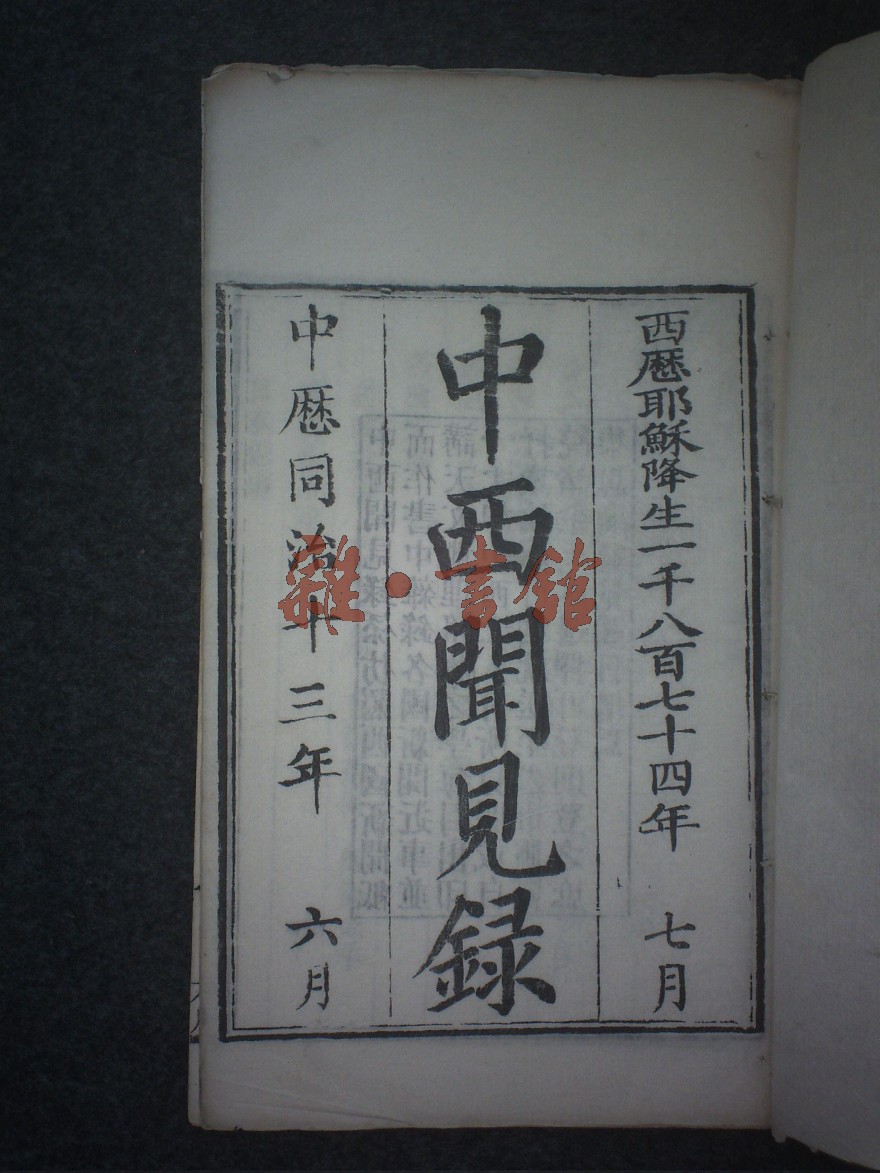 西曆耶穌降生一千八百七十四年 七月
中西聞見録
中曆同治十三年 六月
雜·書館